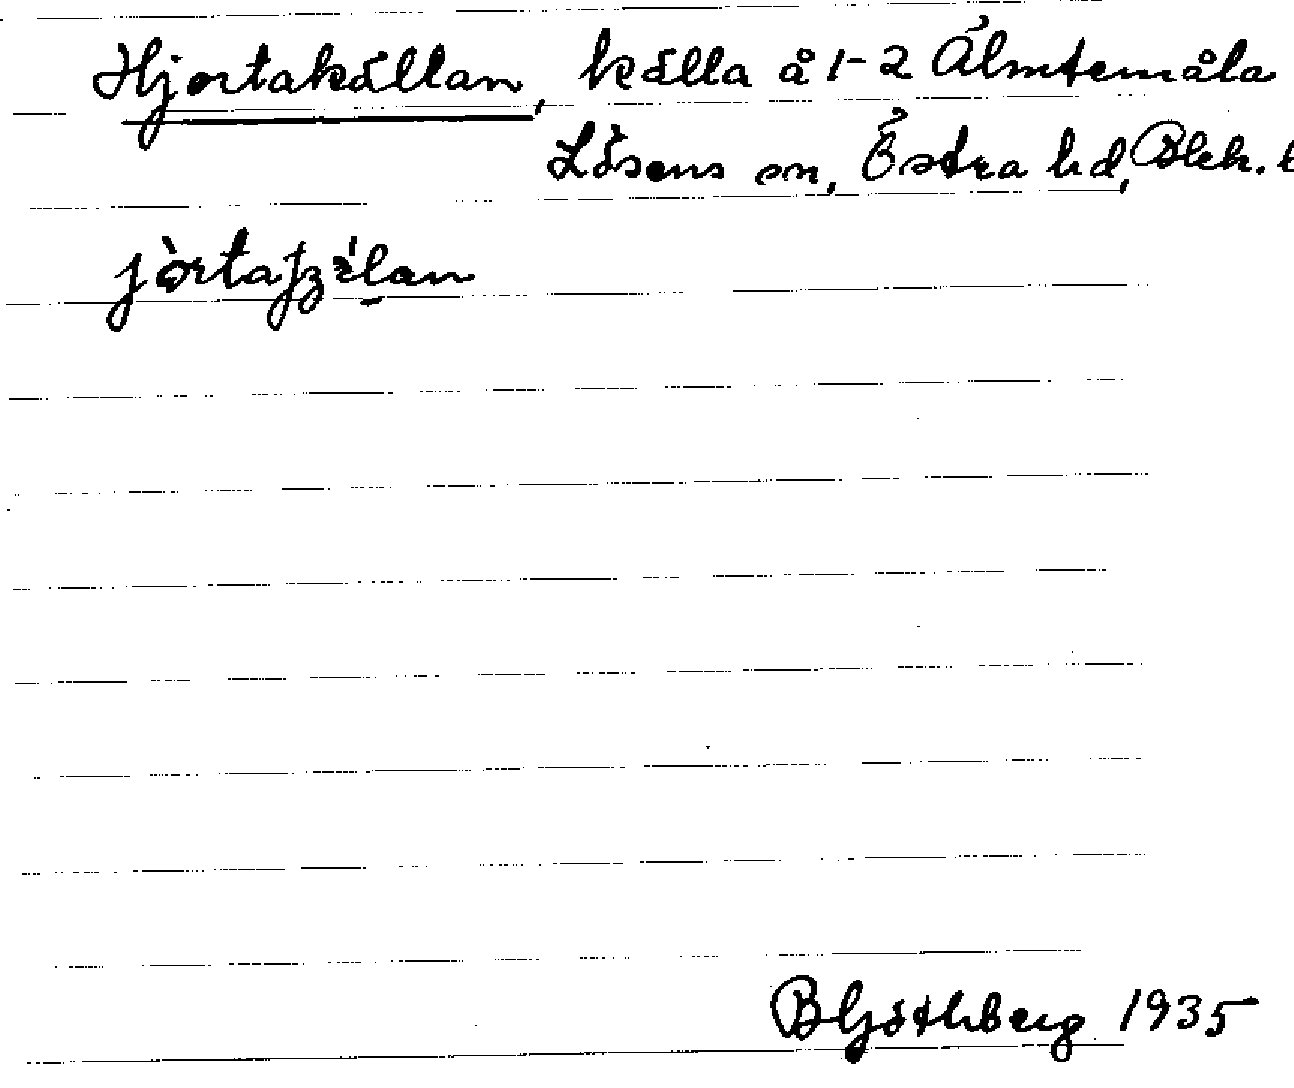 Hjortakällan, källa å 1-2 Älmtemåla
Lösens sn, Östra hd, Blek. l
jòrtaʃʒélan
BGöthberg 1935